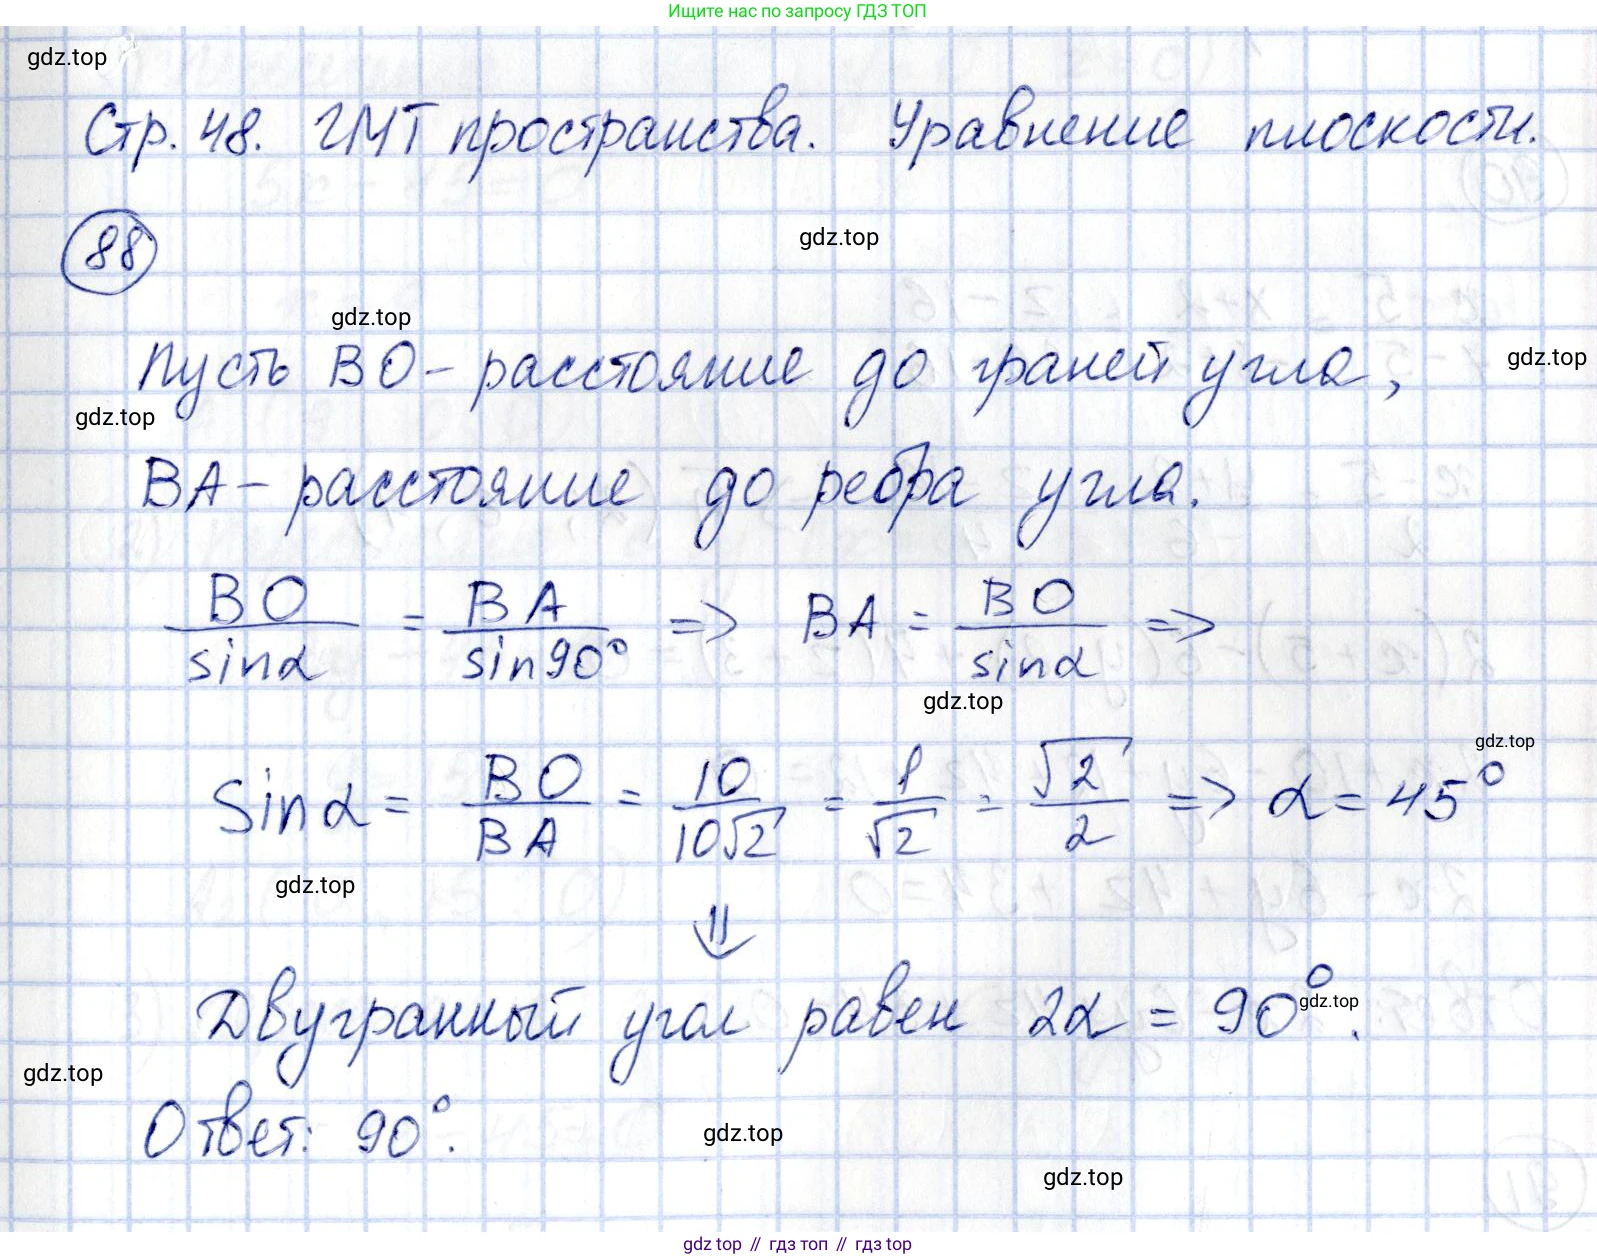 Ищите нас по запросу ГДЗ ТОП
gdz.top
Стр. 48. ГМТ пространства. Уравнение плоскости.
88
gdz.top
gdz.top
Пусть BO – расстояние до граней угла,
gdz.top
gdz.top
BA – расстояние до ребра угла.
BO/sinα = BA/sin90° => BA = BO/sinα =>
gdz.top
gdz.top
Sinα = BO/BA = 10/10√2 = 1/√2 = √2/2 => α = 45°
gdz.top
⇓
Двугранный угол равен 2α = 90°.
gdz.top
gdz.top
Ответ: 90°.
gdz.top
gdz.top
gdz top // гдз топ // gdz top